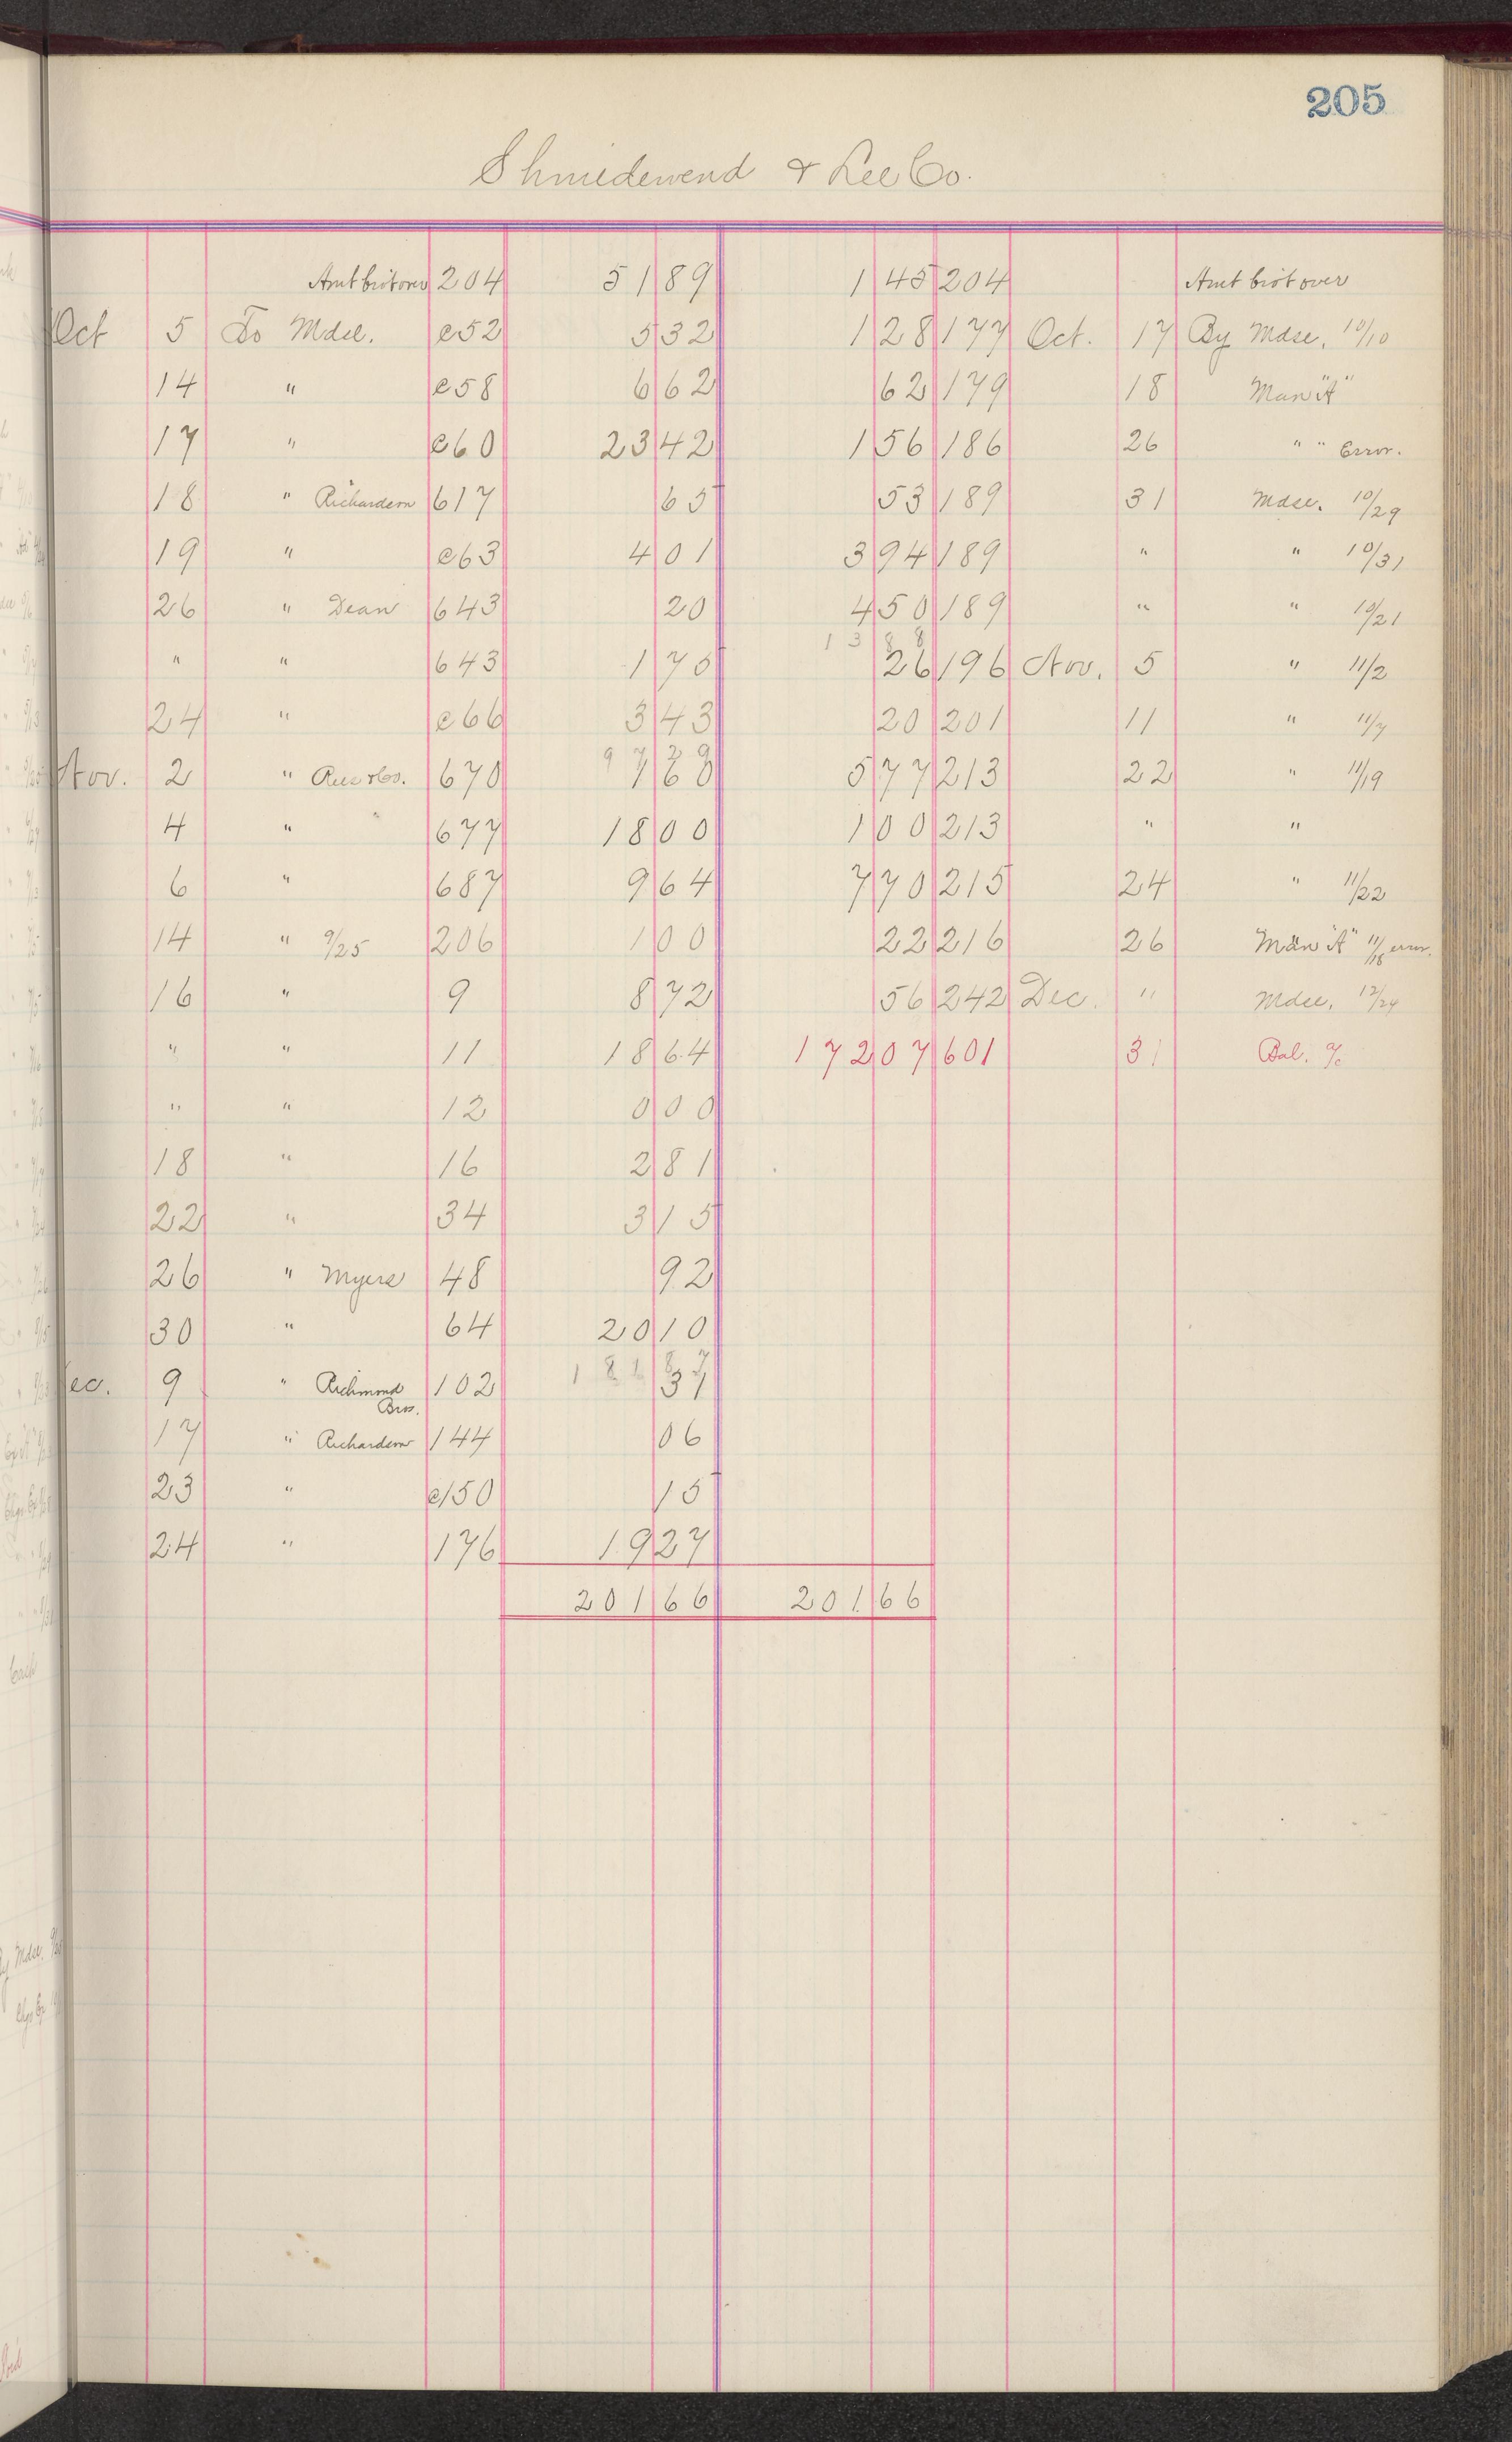 205
Shniedewend & Lee Co.
Amt brot over 204 51 89 1 45 204 Amt brot over
Oct 5 To Mdse. e52 5 32 1 28 177 Oct. 17 By Mdse. 10/10
14 " e58 6 62 62 179 18 Man "A"
17 " e60 23 42 1 56 186 26 " " Error.
18 " Richardson 617 65 53 189 31 Mdse. 10/29
19 " e63 4 01 3 94 189 " " 10/31
26 " Dean 643 20 4 50 189 " " 10/21
13 88
" " 643 1 70 26 196 Nov. 5 " 11/2
24 " e66 3 43 20 201 11 " 11/7
97 29
Nov. 2 " 670 7 68 5 77 213 22 " 11/19
4 " 677 18 00 1 00 213 " "
6 " 687 9 64 7 70 215 24 " 11/22
14 " 9/25 206 1 00 22 216 26 Man "A" 11/18 error.
16 " 9 8 72 56 242 Dec. " Mdse. 12/24
" " 11 18 64 172 07 601 31 Bal. a/c
" " 12 0 00
18 " 16 2 81
22 " 34 3 15
26 " Myers 48 92
30 " 64 20 10
181 87
ec. 9 " Richmond Bros. 102 37
17 " Richardson 144 06
23 " e150 15
24 " 176 19 27
201 66 201 66